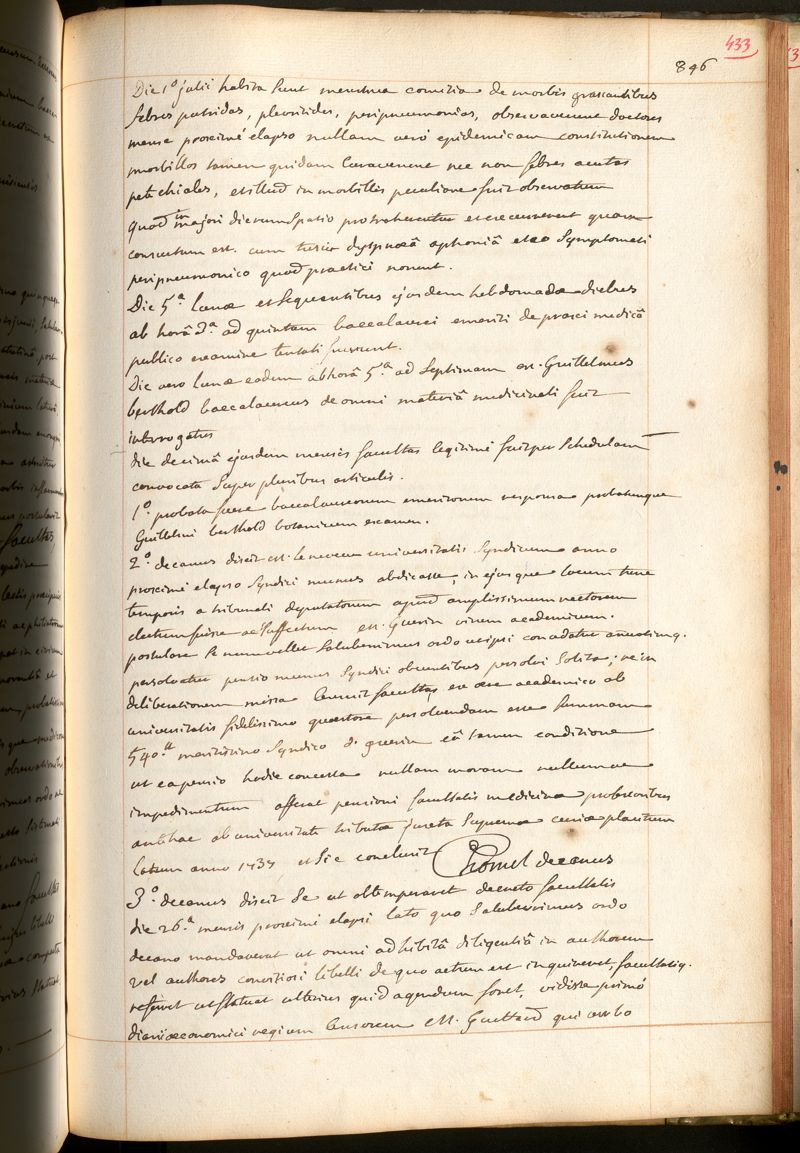 433
896
Die 1º julii habita sunt menstrua comitia de morbis grassantibus
febres putridas, pleuritides, peripneumonias, observaverunt doctores
mense proximé elapso nullam veró epidemicam constitutionem
morbillos tamen quidam curaverunt nec non febres acutas
petechiales, et illud in morbillis peculiare fuit observatum
quod in majori dierum spatio protraherentur et excreverent quam
consuetum est. cum tussi dyspnoeâ aphoniâ et eo symptomati
peripneumonico quod practici norunt.
Die 5ª lunae et sequentibus ejusdem hebdomadae diebus
ab horâ 3ª ad quintam baccalaurei emeriti de praxi medicâ
publico examine tentati fuerunt.
Die vero lunae eadem ab horâ 5ª ad septimam M. Guillelmus
berthold baccalaureus de omni materiâ medicinali fuit
interrogatus
die decimâ ejusdem mensis facultas legitimé fuit per schedulam
convocata super pluribus articulis.
1º. probata fuere baccalaureorum emeritorum responsa probatumque
Guillelmi berthold botanicum examen.
2º. decanus dixit M. le neveu universitatis syndicum anno
proximé elapso syndici munus abdicasse, in ejusque locum tunc
temporis a tribunali deputatorum apud amplissimum rectorem
electum fuisse ac suffectum M. Guerin virum academicum.
postulare se num vellet saluberrimus ordo ut ipsi concedatur annuatimq.
persolvatur pensio munus syndici obeuntibus persolvi solita; re in
deliberationem missa censuit facultas ex aere academico ab
universitatis fidelissimo quaestore persolvendam esse summam
540.ᵗᵗ meritissimo syndico D. guerin eâ tamen conditione
ut ea pensio hodie concessa nullam moram nullumve
impedimentum afferat pensioni facultatis medicinae professoribus
antehac ab universitate tributae juxta supremae curiae placitum
latum anno 1737 et sic conclusit Chomel decanus
3º. decanus dixit se ut obtemperaret decreto facultatis
die 26ª mensis proximi elapsi lato quo saluberrimus ordo
decano mandaverat ut omni adhibitâ diligentiâ in authorem
vel authores convitiosi libelli de quo actum est inquireret, facultatiq.
referret ut statuat ulterius quid agendum foret, vidisse primó
diarii oeconomici regium censorem M. Guettard qui verbo